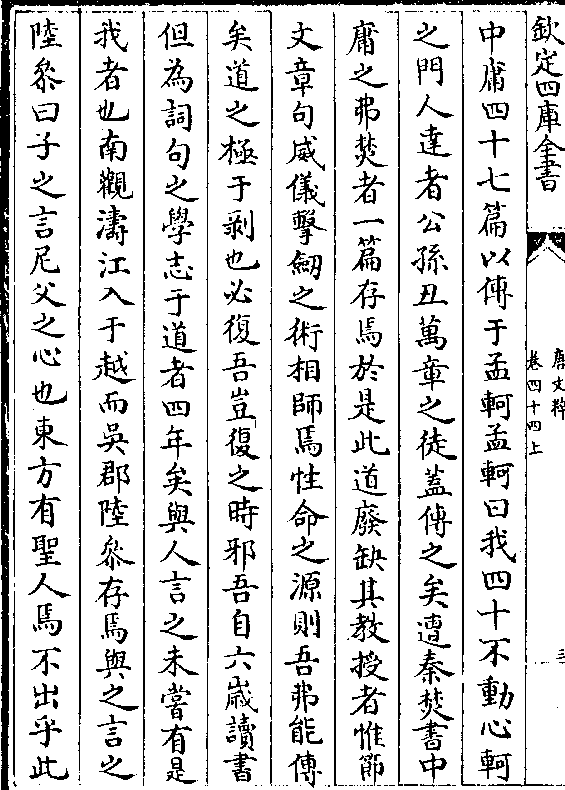 欽定四庫全書
唐文粹
卷四十四上
三
中庸四十七篇以傳于孟軻孟軻曰我四十不動心軻
之門人達者公孫丑萬章之徒蓋傳之矣遭秦焚書中
庸之弗焚者一篇存焉於是此道廢缺其教授者惟節
文章句威儀擊劒之術相師焉性命之源則吾弗能傳
矣道之極于剥也必復吾豈復之時邪吾自六嵗讀書
但為詞句之學志于道者四年矣與人言之未嘗有是
我者也南觀濤江入于越而吳郡陸叅存焉與之言之
陸叅曰子之言尼父之心也東方有聖人焉不出乎此